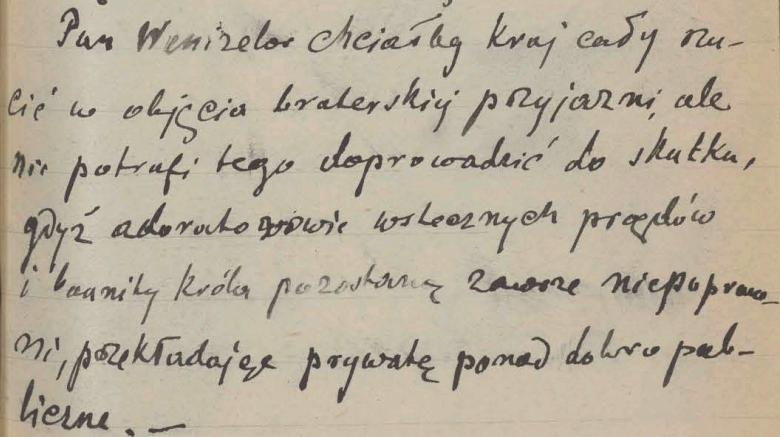 Pan Wenizelos chciałby kraj cały rzu-
cić w objęcia braterskiej przyjaźni, ale
nie potrafi tego doprowadzić do skutku,
gdyż adoratorowie wstecznych prądów
i banity króla pozostaną zawsze niepopraw-
ni, przekładając prywatę ponad dobro pub-
liczne. —